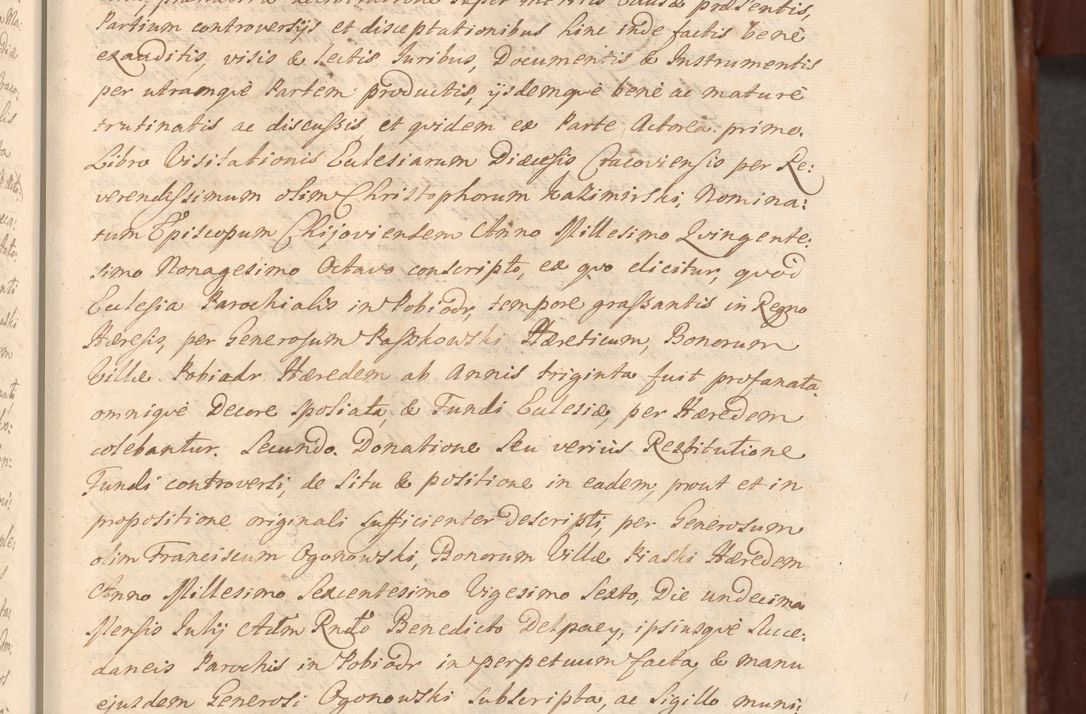 Partium controversijs et disceptationibus hinc inde factis benè
exauditis, visis & lectis Iuribus, Documentis & Instrumentis
per utramqùe Partem productis, ijsdemqùe benè ac maturè
trutinatis ac discussis et qvidem ex Parte Actorea. primo.
Libro Visitationis Ecclesiarum Diæcesis Cracoviensis per Re:
verendissimum olim Christophorum Kazimirski, Nomina:
tum Episcopum Chijoviensem Anno Millesimo Qvingente:
simo Nonagesimo Octavo conscripto, ex quo elicitur, quòd
Ecclesia Parochialis in Pobiodr, tempore grassantis in Regno
Hæresis, per Generosum Paszkowski Hæreticum, Bonorum
Villæ Pobiadr Hæredem ab Annis triginta fuit profanata.
omniqùe Decore spoliata, & Fundi Ecclesiæ, per Hæredem
colebantur. Secundo. Donatione Seu veriùs Restitutione
Fundi controversi, de Situ & positione in eadem, prout et in
propositione originali sufficienter descripti, per Generosum
olim Franciscum Ogonowski, Bonorum Villæ Piaski Hæredem
Anno Millesimo Sexcentesimo Vigesimo Sexto, Die undecima
Mensis Iulij Adm Rndo Benedicto Delpacy, ipsiusqùe Succe:
daneis Parochis in Pobiodr in perpetuum facta, & manu
ejusdem Generosi Ogonowski subscripta, ac Sigillo muni: